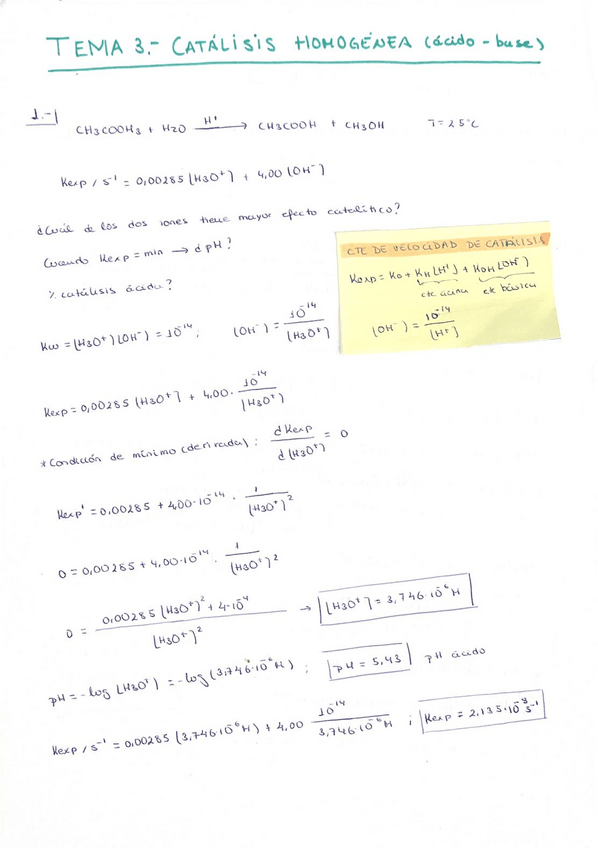 TEMA 3.- CATÁLISIS HOMOGÉNEA (ácido-base)
1.-
CH3COOH3 + H2O —H⁺→ CH3COOH + CH3OH T=25ºC
Kexp / s⁻¹ = 0,00285 (H3O⁺) + 4,00 (OH⁻)
¿Cuál de los dos iones tiene mayor efecto catalítico?
Cuando Kexp = min → ¿pH?
% catálisis ácida?
CTE DE VELOCIDAD DE CATÁLISIS
Kexp = K0 + KH [H⁺] + KOH [OH⁻]
cte ácida cte básica
(OH⁻) = 10⁻¹⁴ / (H⁺)
Kw = (H3O⁺)(OH⁻) = 10⁻¹⁴; (OH⁻) = 10⁻¹⁴ / (H3O⁺)
Kexp = 0,00285 (H3O⁺) + 4,00 · 10⁻¹⁴ / (H3O⁺)
* Condición de mínimo (derivada): d Kexp / d (H3O⁺) = 0
Kexp' = 0,00285 + 4,00·10⁻¹⁴ · 1 / (H3O⁺)²
0 = 0,00285 + 4,00·10⁻¹⁴ · 1 / (H3O⁺)²
0 = 0,00285 (H3O⁺)² + 4·10⁻⁴ / (H3O⁺)² → [H3O⁺] = 3,746·10⁻⁶ M
pH = -log [H3O⁺] = -log (3,746·10⁻⁶ M); pH = 5,43 pH ácido
Kexp / s⁻¹ = 0,00285 (3,746·10⁻⁶ M) + 4,00 10⁻¹⁴ / 3,746·10⁻⁶ M ; Kexp = 2,135·10⁻⁸ s⁻¹